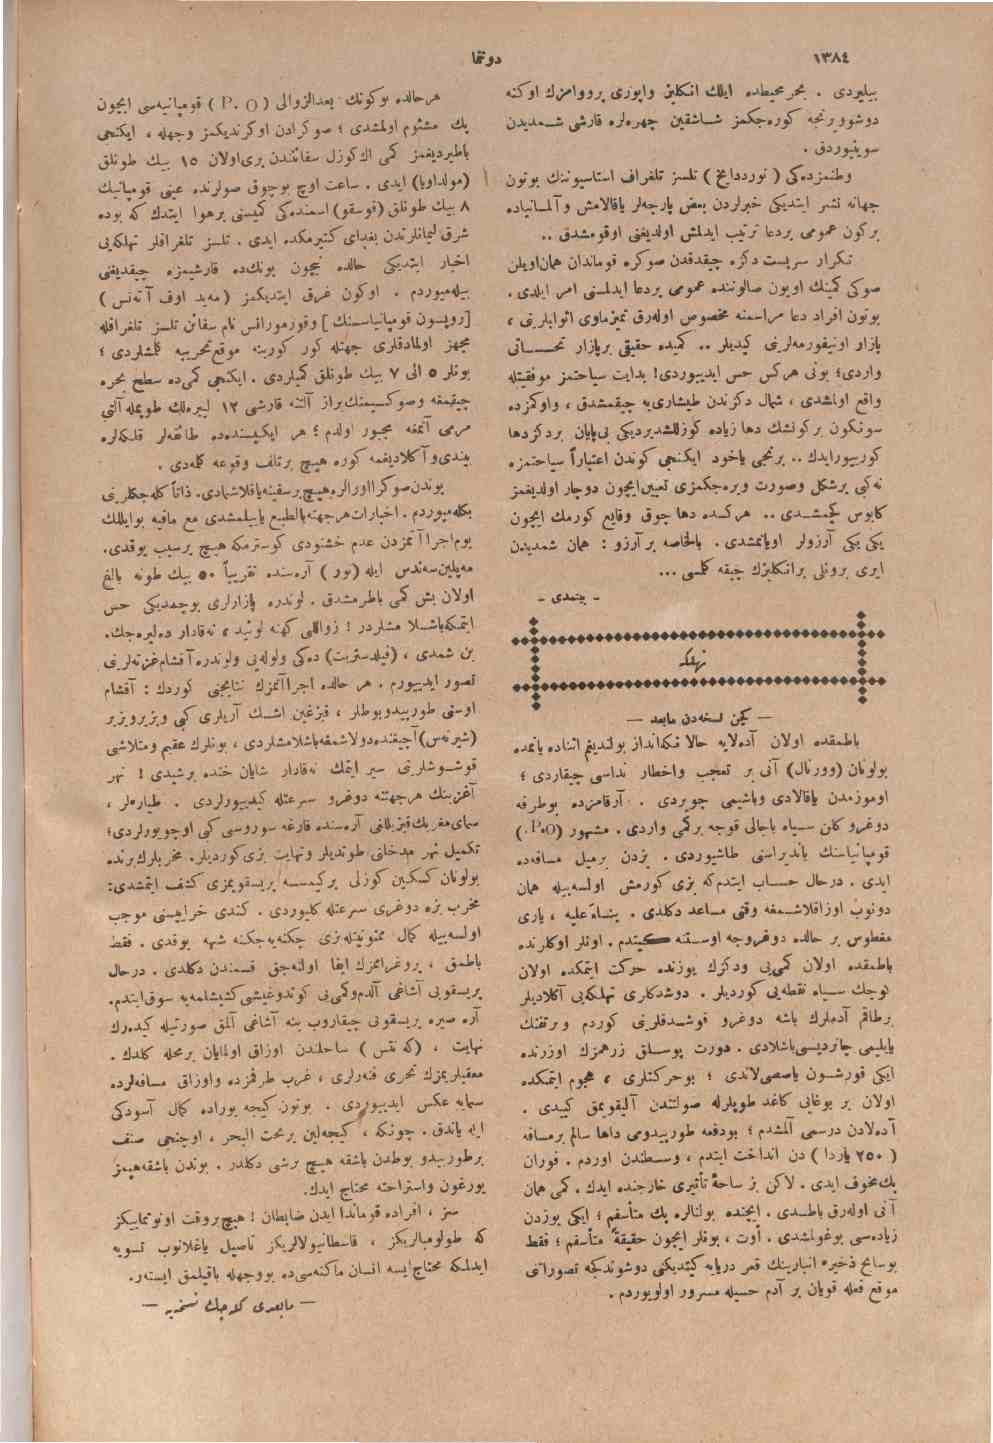 ١٣٨٤
دوتنما
بيليردى . بحر محيطده ايلك انكليز واپورى پرووامزك اوكنه
دوشوويرنجه كوره‌جكمز شاشقين چهره‌لره قارشى شمديدن
سوينيوردق .
وطنمزده‌كى ( نورددايخ ) تلسز تلغراف استاسيوننك بوتون
جهانه نشر ايتديكى خبرلردن بعض پارچه‌لر ياقالامش و آلمانياده
بركون عمومى بردعا ترتيب ايدلمش اولديغنى اوقومشدق ..
تكرار سربست دكزه چيقدقدن صوكره قوماندان همان اويلن
صوكى كمينك اويون صالوننده عمومى بردعا ايدلمسنى امر ايلدى .
بوتون افراد دعا مراسمنه مخصوص اوله‌رق تميز ماوى اثوابلرينى ،
پازار اونيفورمه‌لرينى كيديلر .. كميده حقيقى برپازار تحساتى
واردى؛ بونى هركس حس ايدييوردى! بدايت سياحتمز موفقيتله
واقع اولمشدى ، شمال دكزندن طيشارى‌يه چيقمشدق ، واوكمزده
سونكون بركونشك دها زياده كوزللشديرديكى بى‌پايان بردكز دها
كورييورايدك .. برنجى ياخود ايكنجى كوندن اعتباراً سياحتمزه
نه‌كبى برشكل وصورت ويره‌جكمزى تعيين ايچون دوچار اولديغمز
كابوس كچمشدى .. هركسده دها چوق وقايع كورمك ايچون
يكى يكى آرزولر اويانمشدى . بالخاصه بر آرزو : همان شمديدن
ايرى برونلى برانكليزك جيقه كلمسى ...
- بيتمدى -
تهلكه
— كچن نسخه‌دن مابعد —
باطمقده اولان آدملايه حالا نكه‌انداز بولنديغم اثناده يانمده
بولونان (وورنال) آنى بر تعجب واخطار نداسى چيقاردى ؛
اوموزمدن ياقالادى وباشيمى چويردى . آرقامزده بوطرفه
دوغرو كلن سياه باجالى قوجه بركمى واردى . مشهور (P.O.)
قومپانياسنك بانديراسنى طاشيوردى . بزدن برميل مسافه‌ده
ايدى . درحال حساب ايتدم كه بزى كورمش اولسه‌بيله همان
دونوب اوزاقلاشمغه وقتى مساعد دكلدى . بناءً عليه ، يارى
مغطوس بر حالده دوغروجه اوستنه كيتدم . اونلر اوكلرنده
باطمقده اولان كمى‌يى ودكزك يوزنده حركت ايتمكده اولان
كوچك سياه نقطه‌يى كورديلر . دوشدكلرى تهلكه‌يى آكلاديلر
برطاقم آدملرك باشه دوغرو قوشدقلرينى كوردم وبرتفنك
يايليمى چاترديسى باشلادى . دورت پوسلق زرهمزك اوزرنده
ايكى قورشون ياصصى‌لاندى ؛ بوحركتلرى ، هجوم ايتمكده
اولان بر بوغايى كاغد طوپلرله صولتندن آليقويمق كبيدى .
آده‌لادن درسمى آلمشدم ؛ بودفعه طورپيدومى داها سالم برمسافه
( ٢٥٠ ياردا ) دن انداخت ايتدم ، وسطندن اوردم . فوران
پك مخوف ايدى . لاكن بز ساحۀ تأثيرى خارجنده ايدك . كمى همان
آنى اوله‌رق باطدى . ايچنده بولنانلره پك متأسفم ؛ ايكى يوزدن
زياده‌سى بوغولمشدى . أوت ، بونلر ايچون حقيقةً متأسفم ؛ فقط
بوسايح ذخيره انبارينك قعر دريايه كيتديكنى دوشوندكجه تصوراتنى
موقع فعله قويان بر آدم حسيله مسرور اولويوردم .
هرحالده بوكونك بعدالزوالى (P.O) قومپانيه‌سى ايچون
پك مشئوم اولمشدى ؛ صوكرادن اوكرنديكمز وجهله ، ايكنجى
باطيرديغمز كمى اك كوزل سفائندن برى اولان ١٥ بيك طونلق
(مولداويا) ايدى . ساعت اوچ بوچوق صولرنده عينى قومپانيك
٨ بيك طونلق (قوسقو) اسمنده‌كى كميسنى برهوا ايتدك كه بوده
شرق ليمانلرندن بغداى كتيرمكده ايدى . تلسز تلغرافلر تهلكه‌يى
اخبار ايتديكى حالده نيچون بونك‌ده قارشيمزه چيقديغنى
بيله‌ميوردم . اوكون غرق ايتديكمز (مه‌يد اوف آته‌نس)
[روبسون قومپانياسنك] وقورموراقس نام سفائن تلسز تلغرافله
مجهز اولمادقلرى جهتله كور كورينه موقع تخريبه كلمشلردى ؛
بونلر ٥ الى ٧ بيك طونلق كميلردى . ايكنجى كمى‌ده سطح بحره
چيقمغه وصوكسيمنك براز آلتنه قارشى ١٢ ليبره‌لك طوپمله آلتى
مرمى آتمغه مجبور اولدم ؛ هر ايكيسنده‌ده طائفه‌لر فلكه‌لره
بيندى و آكلاديغمه كوره هيچ برتلف وقوعه كلمه‌دى .
بوندن صوكرا اورالره هيچ برسفينه ياقلاشمادى. ذاتاً كله‌جكلرينى
بكله‌ميوردم . اخبارات هرجهته بالطبع ياييلمشدى مع مافيه بوايللك
يوم اجراآتمزدن عدم خشنودى كوسترمكه هيچ برسبب يوقدى .
مه‌پلين سه‌ندس ايله (نور) آره‌سنده تقريباً ٥٠ بيك طونه بالغ
اولان بش كمى باطرمشدق . لوندره پازارلرى بوجمديكى حس
ايتمكه باشلامشلردر ! زواللى كهنه لوئيد ، نه‌قادار ده‌ليره‌جك.
بن شمدى ، (فيلدستريت) ده‌كى ولوله‌يى ولوندره آقشام غزته‌لرينى
تصور ايدييورم . هر حالده اجراآتمزك نتايجنى كوردك : آقشام
اوستى طورپيدوبوطلر ، قيزغين اشك آريلرى كبى ويزيرويزير
(شيرنه‌س) آچيغنده دولاشمغه باشلامشلردى ، بونلرك عقيم ومتلاشى
قوشوشلرينى سير ايتمك نه‌قادار شايان خنده برشيدى ! نهر
آغزينك هرجهتنه دوغرو سرعتله كيدييورلردى . طياره‌لر ،
سماى مغربك قيزيللغى آره‌سنده قارغه سوروسى كبى اوچويورلردى؛
تكميل نهر مدخلنى طوتديلر ونهايت بزى كورديلر. مخربلرك برنده
بولونان كسكين كوزلى بركيمسه پريسقوپمزى كشف ايتمشدى:
مخرب بزه دوغرى سرعتله كلييوردى . كندى خرابيسنى موجب
اولسه‌بيله كمال ممنونيتله بزى چيكنه‌يه‌جكنه شبهه يوقدى . فقط
باطمق ، پروغرامزك ايفا اولنه‌جق قسمندن دكلدى . درحال
پريسقوپى آشاغى آلدم وكمى‌يى كوندوغيشى كنيشلامه‌يه سوق ايتدم.
آره صيره پريسقوپى چيقاروب ينه آشاغى آلمق صورتيله كيده‌رك
نهايت ، (كه نتس) ساحلندن اوزاق اولمايان برمحله كلدك .
معقبلريمزك تحرى فنه‌رلرى ، غرب طرفمزده واوزاق مسافه‌لرده
سمايه عكس ايدييوردى . بوتون كيجه بوراده كمال آسودكى
ايله ياتدق . چونكه ، كيجه‌لين برتحت البحر ، اوچنجى صنف
برطورپيدو بوطدن باشقه هيچ برشى دكلدر . بوندن باشقه هپمز
يورغون واستراحته محتاج ايدك.
سز ، افراده قوماندا ايدن ضابطان ! هيچ بروقت اونوتمايكز
كه طولومبالريكز ، قاسطانيولالريكز ناصيل ياغلانوب تسويه
ايدلمكه محتاج ايسه انسان ماكنه‌سى‌ده بووجهله باقيلمق ايسته‌ر.
— مابعدى كله‌جك نسخه‌ده —